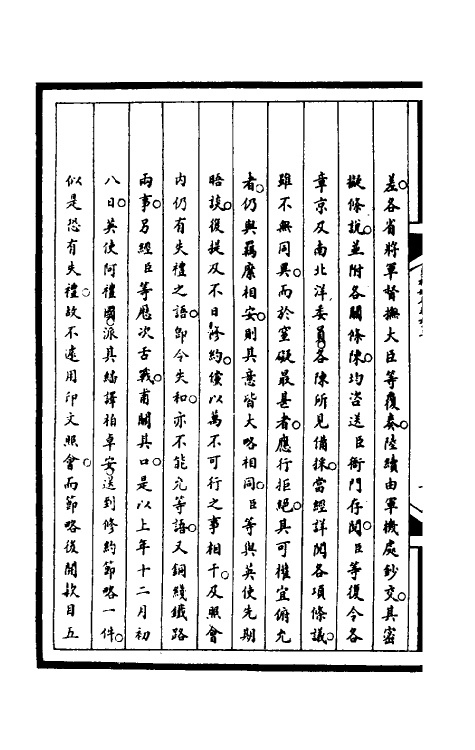 差。各省將軍督撫大臣等覆奏。陸續由軍機處鈔交。其密
擬條說。並附各關條陳。均咨送臣衙門存閱。臣等復令各
章京及南北洋委員。各陳所見備採。當經詳閱各項條議。
雖不無同異。而於窒礙最甚者。應行拒絕。其可權宜俯允
者。仍與羈縻相安。則其意皆大略相同。臣等與英使先期
晤談。復提及不日修約。儻以萬不可行之事相干。及照會
內仍有失禮之語。卽令失和。亦不能允等語。又銅綫鐵路
兩事。另經臣等屢次舌戰。甫關其口。是以上年十二月初
八日。英使阿禮國。派其繙譯柏卓安。送到修約節略一件。
似是恐有失禮。故不遽用印文照會。而節略後開款目五